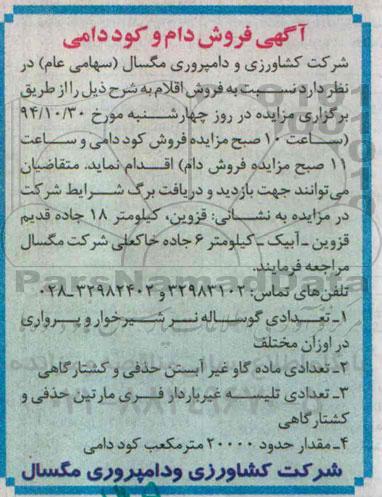 آگهی فروش دام و کود دامی
شرکت کشاورزی و دامپروری مگسال (سهامی عام) در
نظر دارد نسبت به فروش اقلام به شرح ذیل را از طریق
برگزاری مزایده در روز چهارشنبه مورخ ۹۴/۱۰/۳۰
(ساعت ۱۰ صبح مزایده فروش کود دامی و ساعت
۱۱ صبح مزایده فروش دام) اقدام نماید. متقاضیان
می‌توانند جهت بازدید و دریافت برگ شرایط شرکت
در مزایده به نشانی: قزوین، کیلومتر ۱۸ جاده قدیم
قزوین ـ آبیک ـ کیلومتر ۶ جاده خاکعلی شرکت مگسال
مراجعه فرمایند.
تلفن‌های تماس: ۳۲۹۸۳۱۰۲ و ۳۲۹۸۲۴۰۲ـ۰۲۸
۱ـ تعدادی گوساله نر شیرخوار و پرواری
در اوزان مختلف
۲ـ تعدادی ماده گاو غیر آبستن حذفی و کشتارگاهی
۳ـ تعدادی تلیسه غیرباردار فری مارتین حذفی و
کشتارگاهی
۴ـ مقدار حدود ۲۰۰۰۰ مترمکعب کود دامی
شرکت کشاورزی ودامپروری مگسال
ParsNamadData